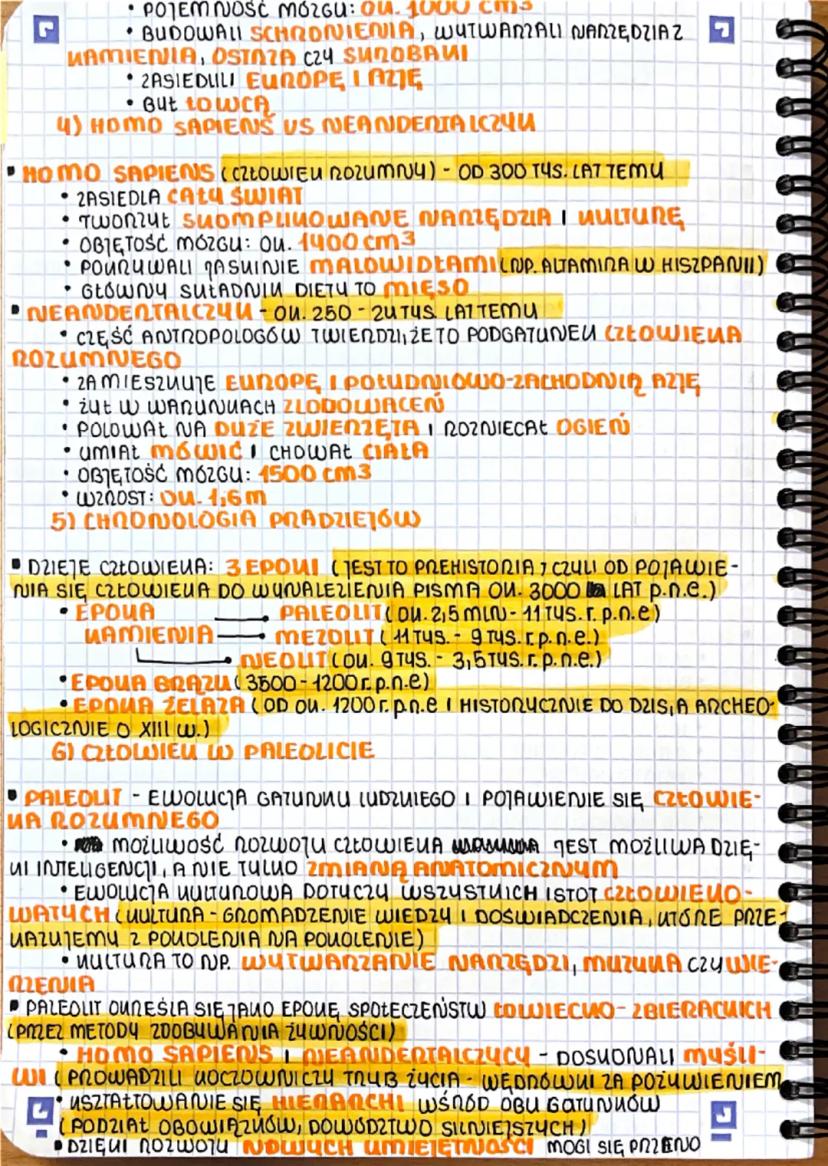 • POJEMNOŚĆ MÓZGU: OK. 1000 CM3
• BUDOWALI SCHRONIENIA, WYTWARZALI NARZĘDZIA Z
KAMIENIA, OSTRZA CZY SKROBAKI
• ZASIEDLILI EUROPĘ I AZJĘ
• BYŁ ŁOWCĄ
4) HOMO SAPIENS VS NEANDERTALCZYK
▪ HOMO SAPIENS (CZŁOWIEK ROZUMNY) - OD 300 TYS. LAT TEMU
• ZASIEDLA CAŁY ŚWIAT
• TWORZYŁ SKOMPLIKOWANE NARZĘDZIA I KULTURĘ
• OBJĘTOŚĆ MÓZGU: OK. 1400 cm3
• POKRYWALI JASKINIE MALOWIDŁAMI (NP. ALTAMIRA W HISZPANII)
• GŁÓWNY SKŁADNIK DIETY TO MIĘSO
▪ NEANDERTALCZYK - OK. 250 - 24 TYS. LAT TEMU
• CZĘŚĆ ANTROPOLOGÓW TWIERDZI, ŻE TO PODGATUNEK CZŁOWIEKA
ROZUMNEGO
• ZAMIESZKUJE EUROPĘ I POŁUDNIOWO-ZACHODNIĄ AZJĘ
• ŻYŁ W WARUNKACH ZLODOWACEŃ
• POLOWAŁ NA DUŻE ZWIERZĘTA I ROZNIECAŁ OGIEŃ
• UMIAŁ MÓWIĆ I CHOWAŁ CIAŁA
• OBJĘTOŚĆ MÓZGU: 1500 cm3
• WZROST: OK. 1,6 m
5) CHRONOLOGIA PRADZIEJÓW
▪ DZIEJE CZŁOWIEKA: 3 EPOKI (JEST TO PREHISTORIA, CZYLI OD POJAWIE-
NIA SIĘ CZŁOWIEKA DO WYNALEZIENIA PISMA OK. 3000 LAT p.n.e.)
• EPOKA PALEOLIT (OK. 2,5 MLN - 11 TYS. r. p.n.e)
KAMIENIA MEZOLIT (11 TYS. - 9 TYS. r. p.n.e.)
NEOLIT (OK. 9 TYS. - 3,5 TYS. r. p.n.e.)
• EPOKA BRĄZU (3500 - 1200 r. p.n.e)
• EPOKA ŻELAZA (OD OK. 1200 r. p.n.e I HISTORYCZNIE DO DZIS, A ARCHEO-
LOGICZNIE O XIII W.)
6) CZŁOWIEK W PALEOLICIE
▪ PALEOLIT - EWOLUCJA GATUNKU LUDZKIEGO I POJAWIENIE SIĘ CZŁOWIE-
KA ROZUMNEGO
• MOŻLIWOŚĆ ROZWOJU CZŁOWIEKA JEST MOŻLIWA DZIĘ-
KI INTELIGENCJI, A NIE TYLKO ZMIANĄ ANATOMICZNYM
• EWOLUCJA KULTUROWA DOTYCZY WSZYSTKICH ISTOT CZŁOWIEKO-
WATYCH (KULTURA - GROMADZENIE WIEDZY I DOŚWIADCZENIA, KTÓRE PRZE-
KAZUJEMY Z POKOLENIA NA POKOLENIE)
• KULTURA TO NP. WYTWARZANIE NARZĘDZI, MUZYKA CZY WIE-
RZENIA
▪ PALEOLIT OKREŚLA SIĘ JAKO EPOKĘ SPOŁECZEŃSTW ŁOWIECKO - ZBIERACKICH
(PRZEZ METODY ZDOBYWANIA ŻYWNOŚCI)
• HOMO SAPIENS I NEANDERTALCZYCY - DOSKONALI MYŚLI-
WI (PROWADZILI KOCZOWNICZY TRYB ŻYCIA - WĘDRÓWKI ZA POŻYWIENIEM
• KSZTAŁTOWANIE SIĘ HIERARCHI WŚRÓD OBU GATUNKÓW
(PODZIAŁ OBOWIĄZKÓW, DOWÓDZTWO SILNIEJSZYCH)
• DZIĘKI ROZWOJU NOWYCH UMIEJĘTNOŚCI MOGI SIĘ PRZENO